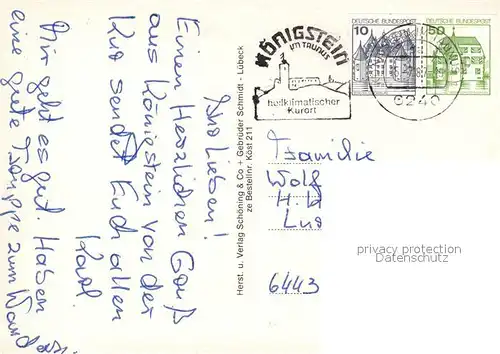 Ihr Lieben!
Einen Herzlichen Gruß
aus Königstein von der
Kur sendet Euch allen
Karl
Mir geht es gut. Haben
eine gute Gruppe zum Wandern
Herst. u. Verlag Schöning & Co + Gebrüder Schmidt - Lübeck
ze Bestellnr. Köst 211
KÖNIGSTEIN
IM TAUNUS
heilklimatischer
Kurort
DEUTSCHE BUNDESPOST
10
DEUTSCHE BUNDESPOST
50
6240
Familie
Wolf
H. W
6443
privacy protection
Datenschutz